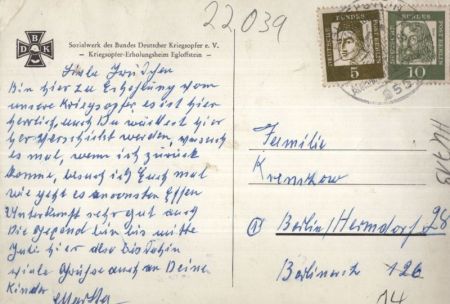 22,039
BDK
Sozialwerk des Bundes Deutscher Kriegsopfer e. V.
– Kriegsopfer-Erholungsheim Egloffstein –
Bin hier zu Erholung vom
unsere Kriegsopfer es ist hier
herrlich, auch Du würdest hier
versuch
es mal, wenn ich zurück
komme, besuch ich Euch mal
wie geht es ansonsten Essen
Unterkunft sehr gut auch
Die Gegend bin bis mitte
Juli hier also bis dahin
viele Grüße auch an Deine
Kinder
Martha
DEUTSCHE BUNDESPOST BERLIN
5
DEUTSCHE BUNDESPOST BERLIN
10
Familie
Krenskow
1 Berlin/Hermsdorf 28
Berlinerstr 126
14